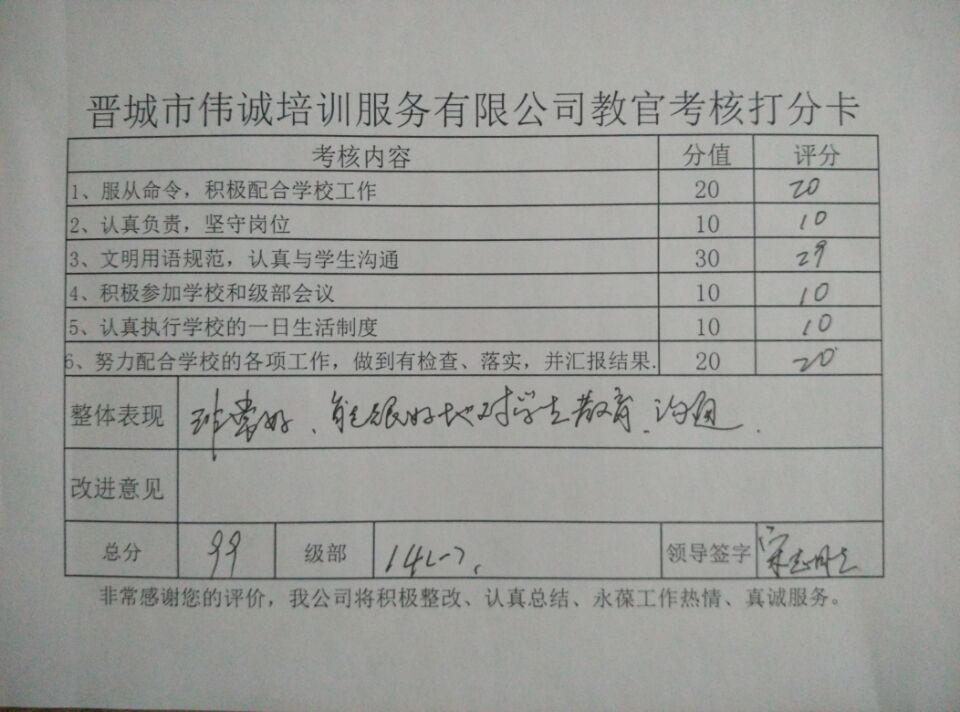 晋城市伟诚培训服务有限公司教官考核打分卡
考核内容 分值 评分
1、服从命令，积极配合学校工作 20 20
2、认真负责，坚守岗位 10 10
3、文明用语规范，认真与学生沟通 30 29
4、积极参加学校和级部会议 10 10
5、认真执行学校的一日生活制度 10 10
6、努力配合学校的各项工作，做到有检查、落实，并汇报结果. 20 20
整体表现 非常好、能很好地对学生教育、沟通.
改进意见
总分 99 级部 领导签字
非常感谢您的评价，我公司将积极整改、认真总结、永葆工作热情、真诚服务。